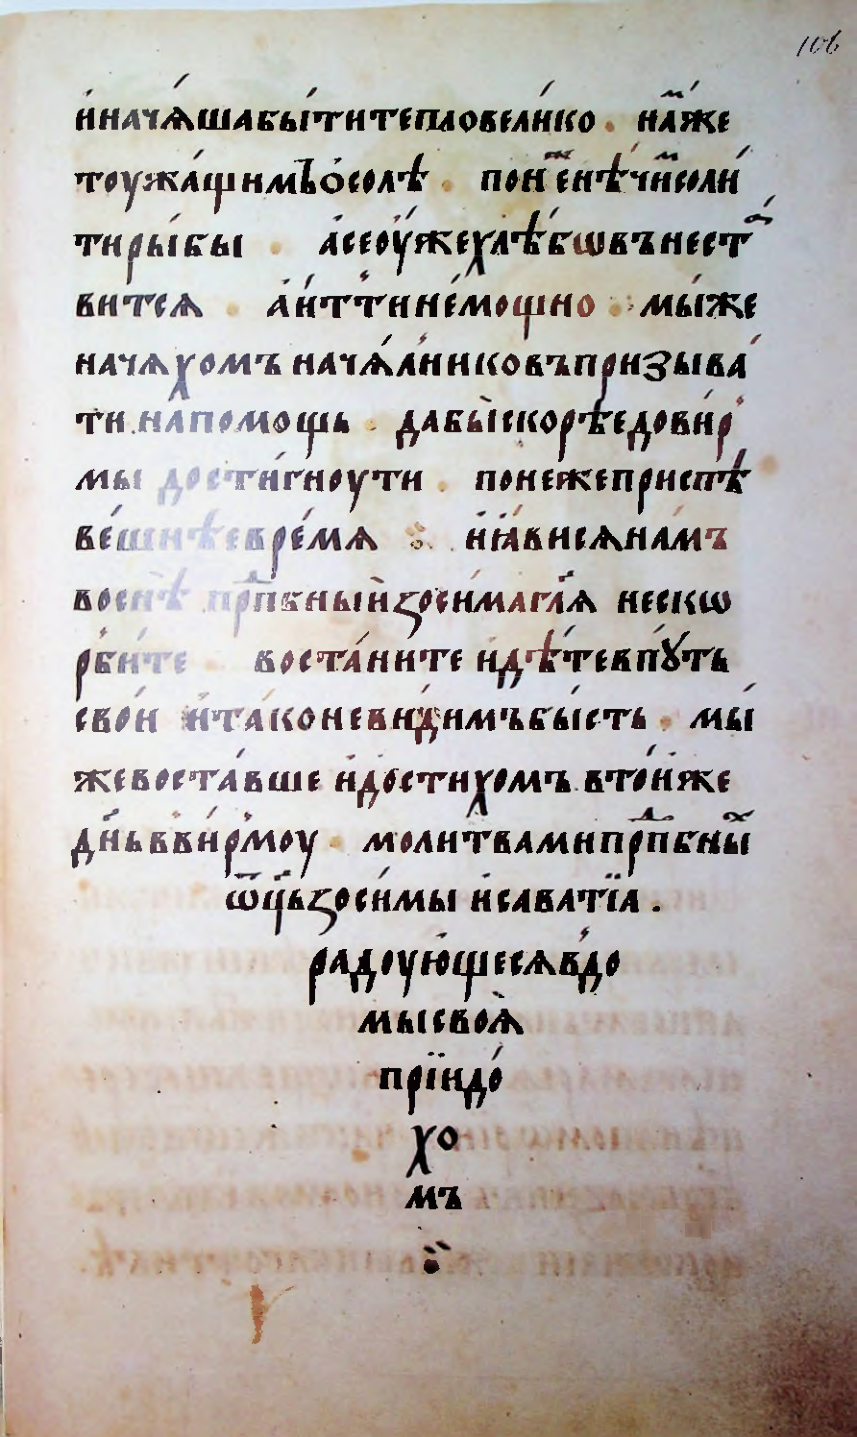 106
и҆нача́ша бы́ти тепло вели́ко . на́мже
тоужа́щимъ ѻ҆ со́лѣ . поне́ нѣ чи́м соли́
ти ры́бы . а҆ се оу҆́же хлѣ́бѡвъ не ста́
вится . а҆ и҆тти не́мощно . мы́же
нача́хомъ нача́лниковъ призыва́
ти на помощь . дабы̀ скорѣ́е до ви́р
мы дости́гноути . понеже приспѣ́
ве́шнѣе вре́мя . и҆ ꙗ҆́вися на́мъ
во снѣ̀ прпⷣбный зоси́ма гл҃я не скѡ
рби́те . воста́ните и҆дѣ́те в пꙋ́ть
сво́й и҆ та́ко неви́димъ бы́сть . мы́
же воста́вше и҆ дости́хомъ в то́йже
дн҃ь в ви́рмоу . моли́твами прпⷣбны́х
ѿц҃ъ зоси́мы и҆ савати́а .
радоую́щеся в до
мы своя̀
прїидо́
хо
мъ